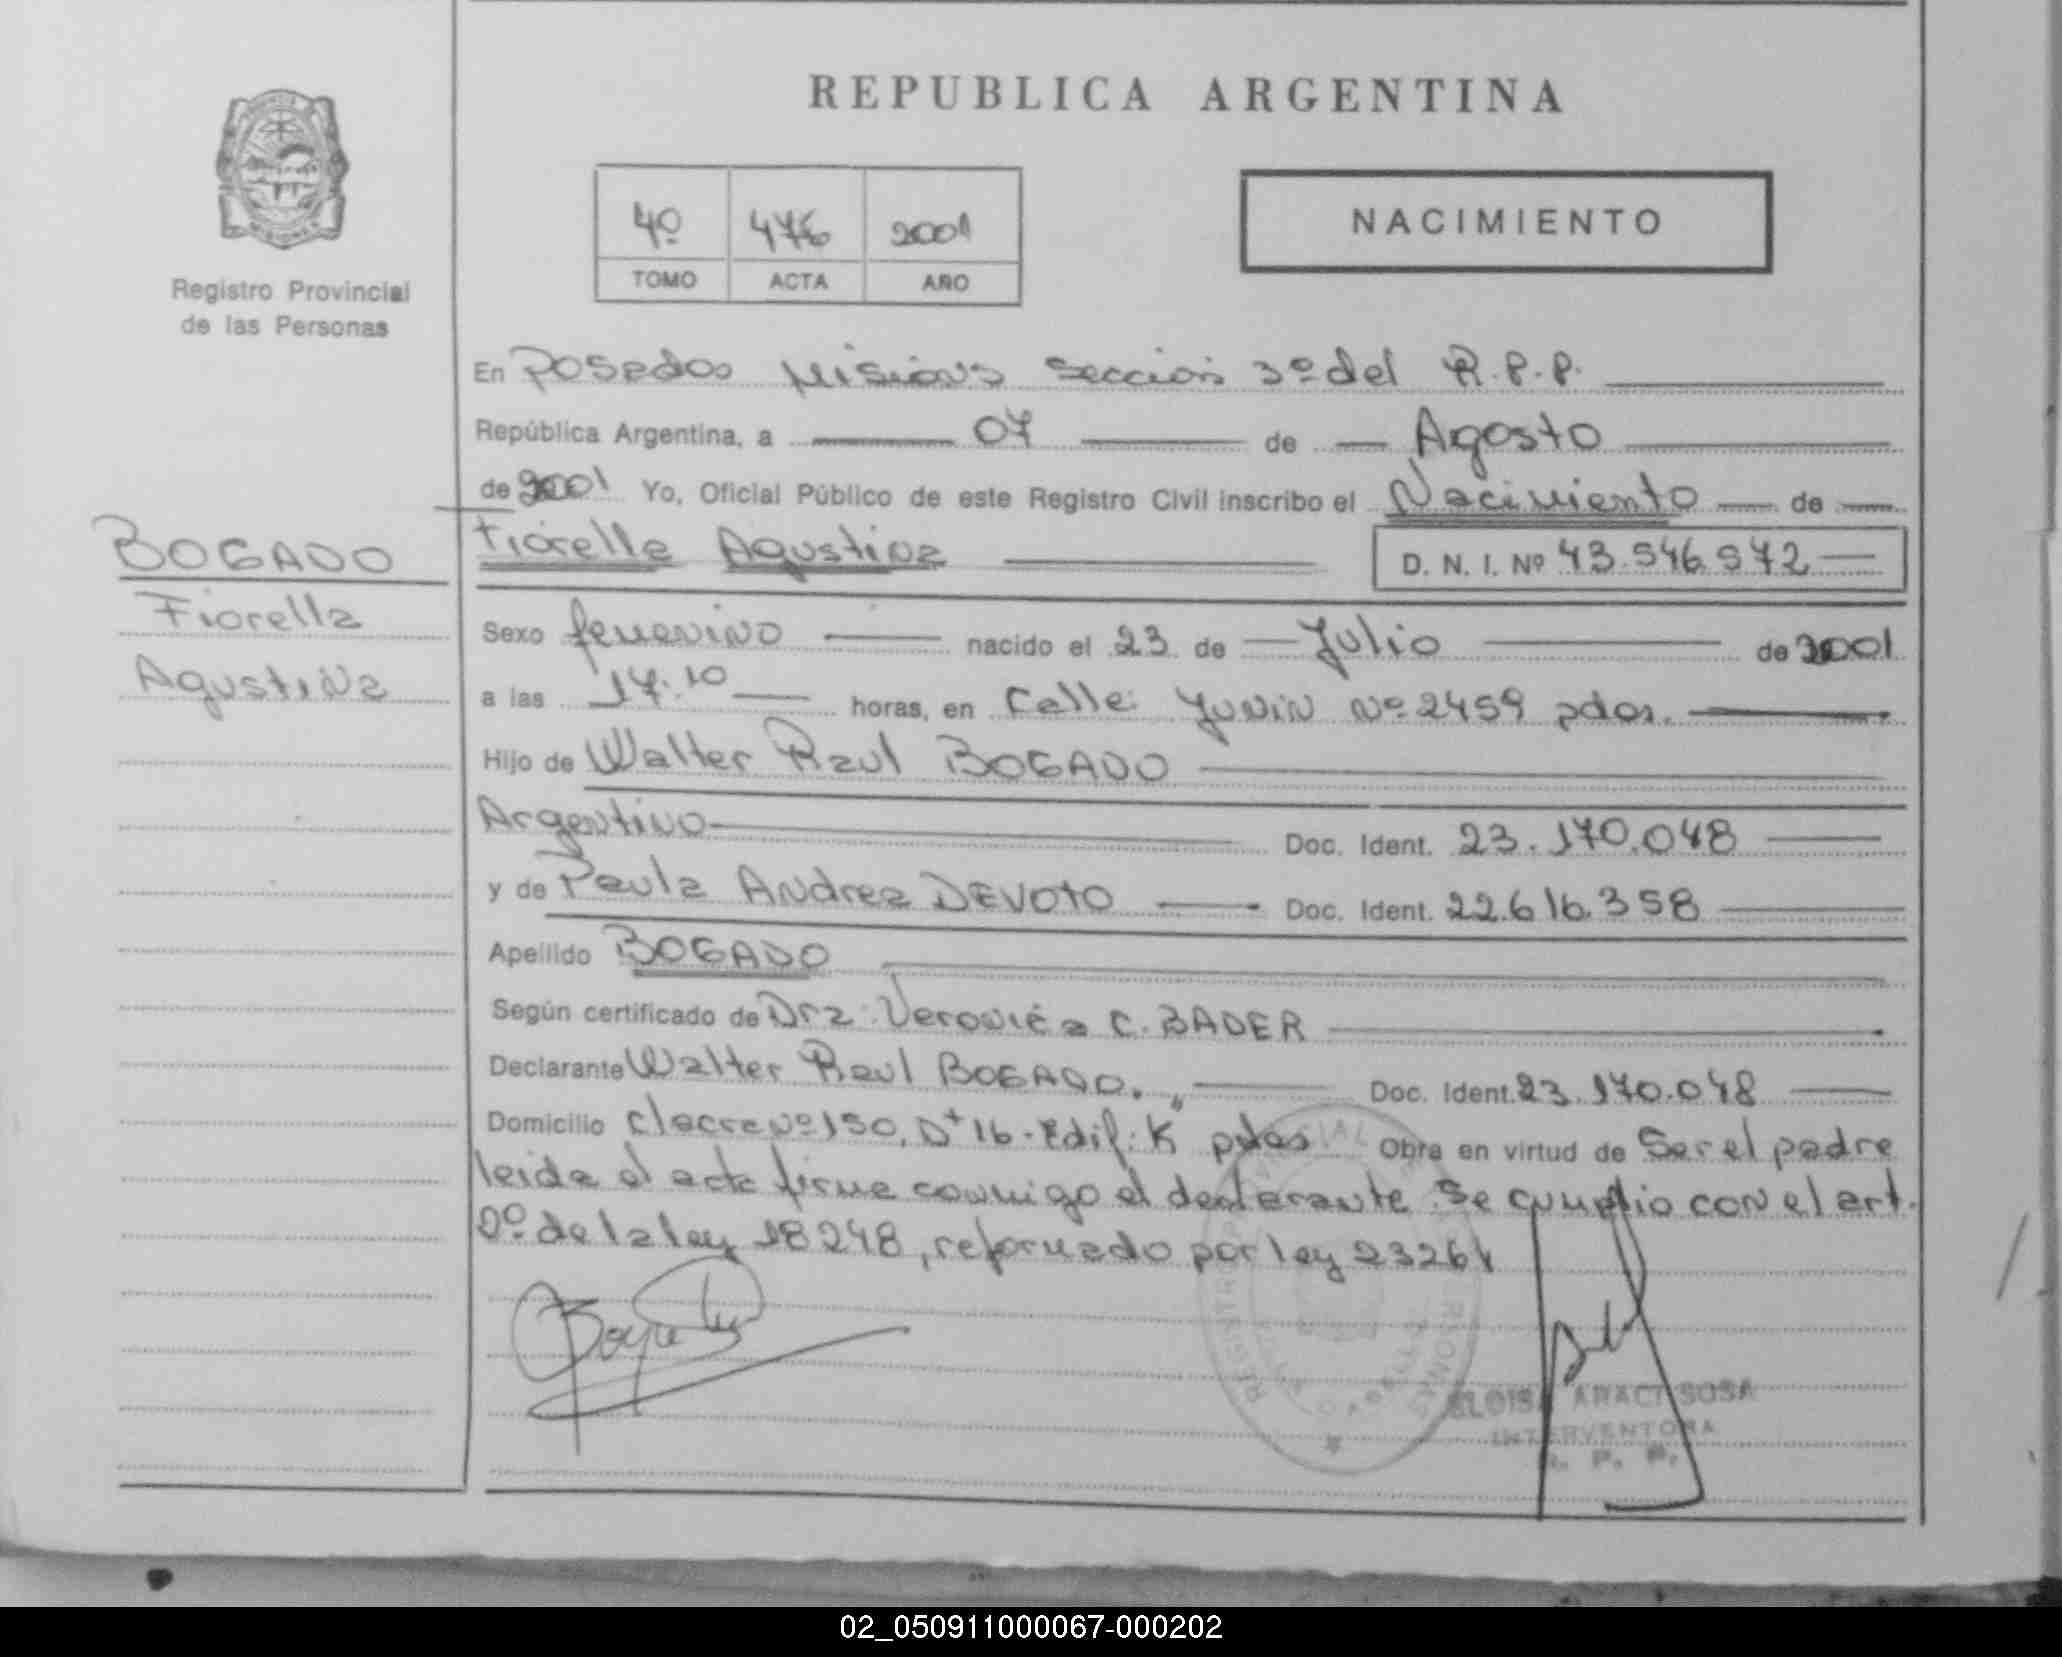 REPUBLICA ARGENTINA
Registro Provincial
de las Personas
4º 476 2001
TOMO ACTA AÑO
NACIMIENTO
En Posadas Misiones Sección 3º del R.P.P.
República Argentina, a 07 de Agosto
de 2001 Yo, Oficial Público de este Registro Civil inscribo el Nacimiento de
Fiorella Agustina D. N. I. Nº 43.546.572
BOGADO
Fiorella
Agustina
Sexo femenino nacido el 23 de Julio de 2001
a las 17:10 horas, en Calle: Junin Nº 2459 pdas.
Hijo de Walter Raul BOGADO
Argentino Doc. Ident. 23.170.048
y de Paula Andrea DEVOTO Doc. Ident. 22.616.358
Apellido BOGADO
Según certificado de Dra: Veronica C. BADER
Declarante Walter Raul BOGADO. Doc. Ident. 23.170.048
Domicilio Nº 150, Dt 16 - Edif: "K" pdas Obra en virtud de Ser el padre
leida el acta firma conmigo el declarante. Se cumplio con el art.
2º de la ley 18248, reformado por ley 23264
REGISTRO PROVINCIAL PERSONAS
ELOISA ARACI SOSA
INTERVENTORA
R. P. P.
02_050911000067-000202